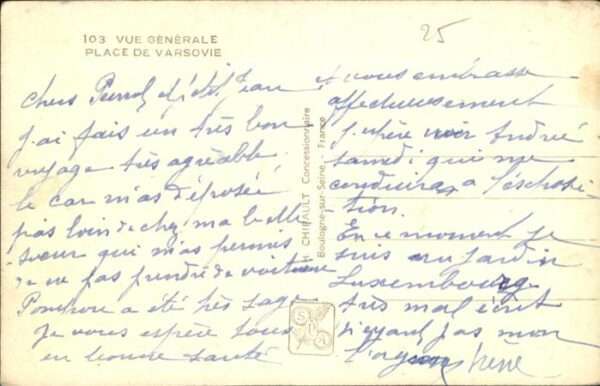 103 VUE GÉNÉRALE
PLACE DE VARSOVIE
25
chers et Jean
j'ai fais un très bon
voyage très agréable
le car m'as déposée
pas loin de chez ma belle
sœur qui m'as permis
de ne pas prendre de voiture
a été très sage
Je vous espère tous
en bonne santé
H. CHIRAULT Concessionnaire
Boulogne-sur-Seine - France
SPA
vous embrasse
affectueusement
j'espère voir André
samedi qui me
conduira a l'exhosi-
tion.
En ce moment je
suis au Jardin
Luxembourg
très mal écrit
n'ayant pas mon
Irène